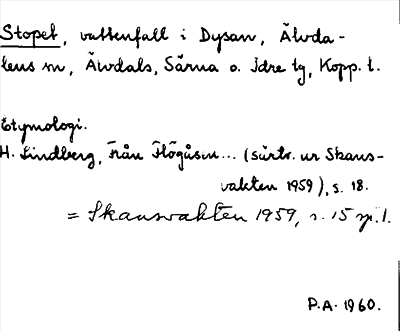 Stopet, vattenfall i Dysan, Älvda-
lens sn, Älvdals, Särna o. Idre tg, Kopp. l.
Etymologi.
H. Lindberg, Från Högåsen... (särtr. ur Skans-
vakten 1959), s. 18.
= Skansvakten 1959, s. 15 sp. 1.
P.A. 1960.